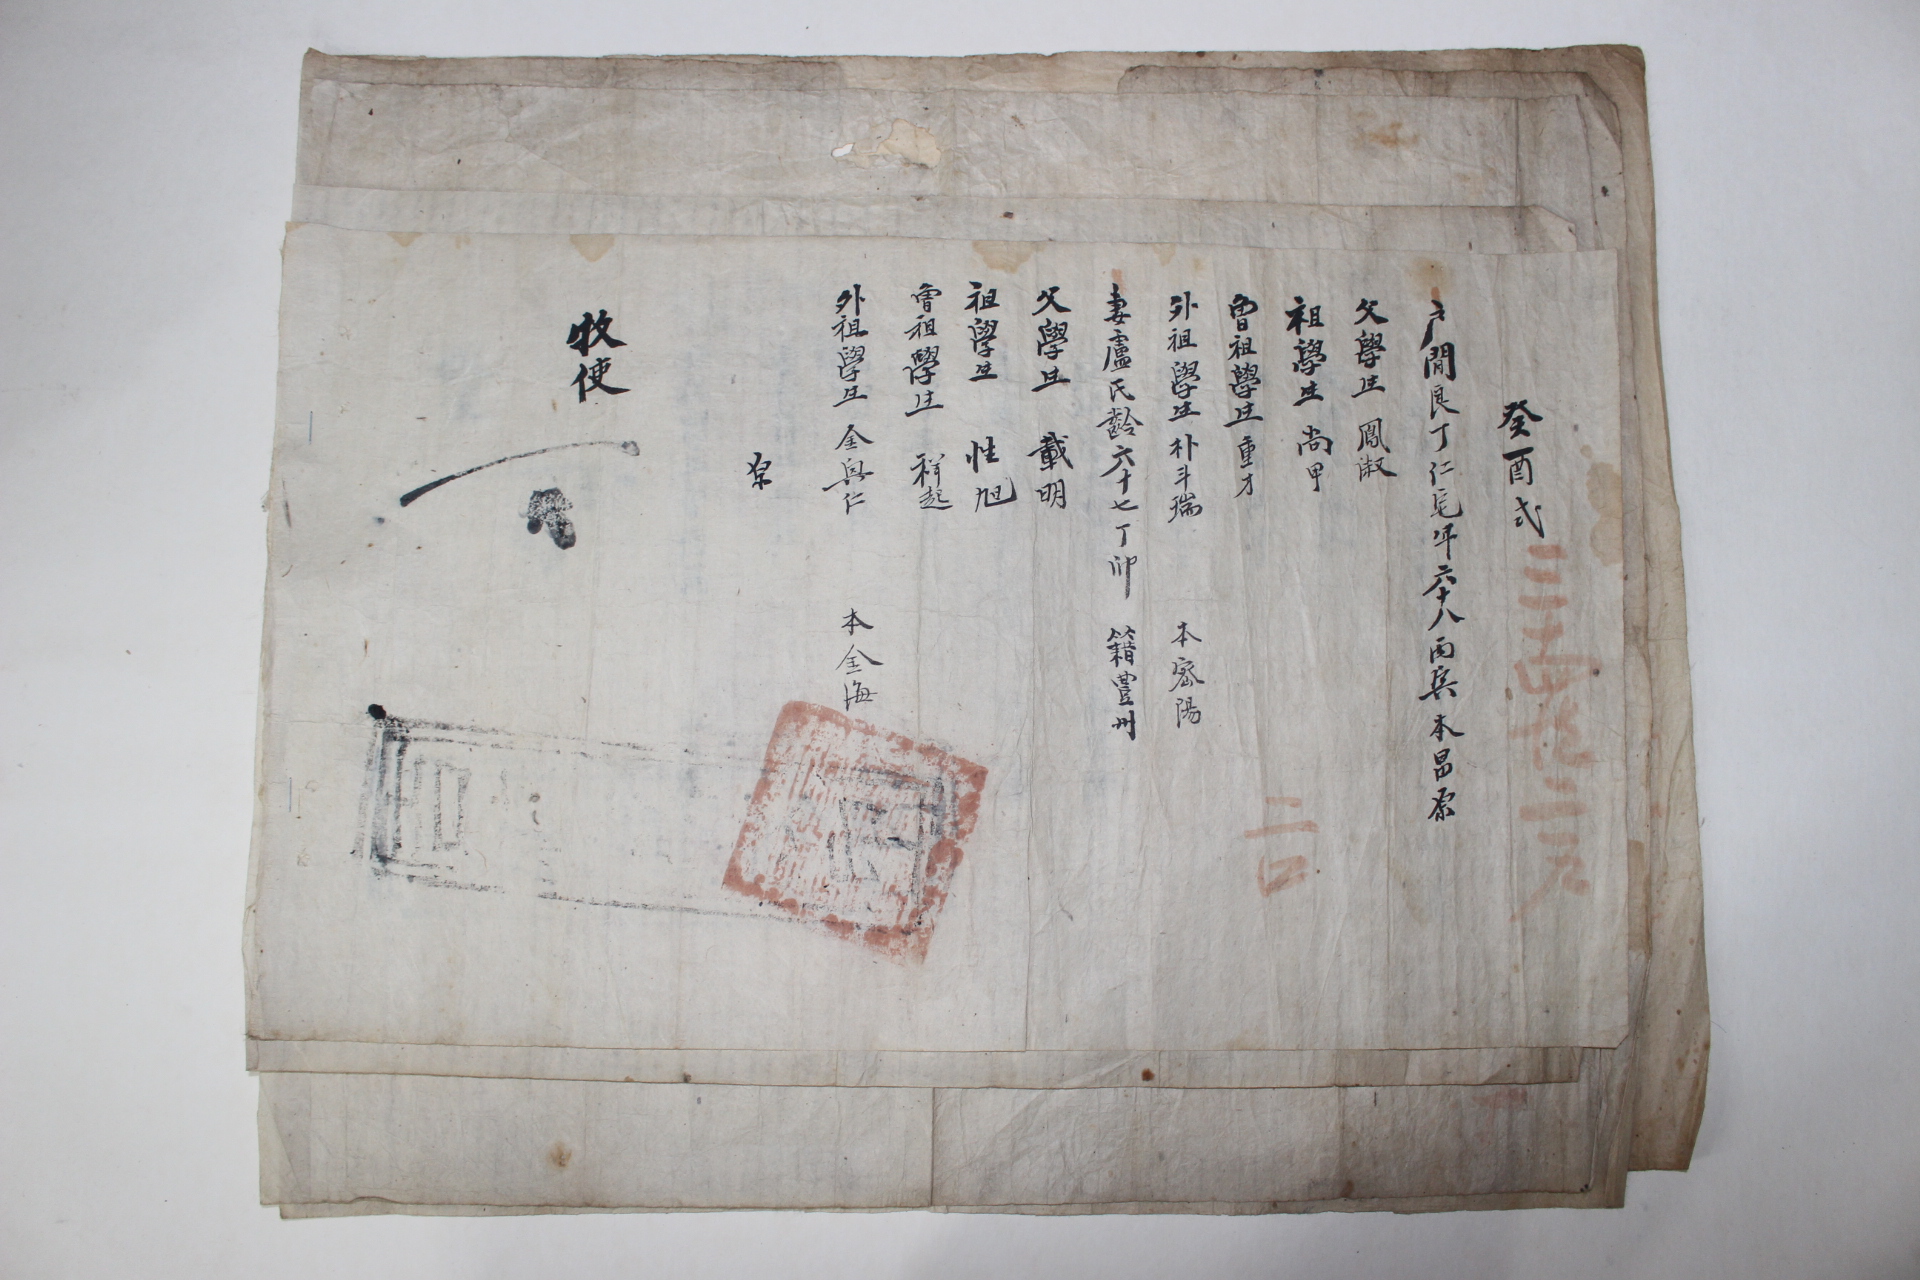 癸酉式
戶閒良丁仁 年六十八丙寅本昌原
父學生 鳳淑
祖學生 尚甲
曾祖學生 重才
外祖學生 朴斗瑞 本密陽
妻盧氏齡六十七丁卯 籍豊州
父學生 載明
祖學生 性旭
曾祖學生 祥起
外祖學生 金與仁 本金海
牧使
二口